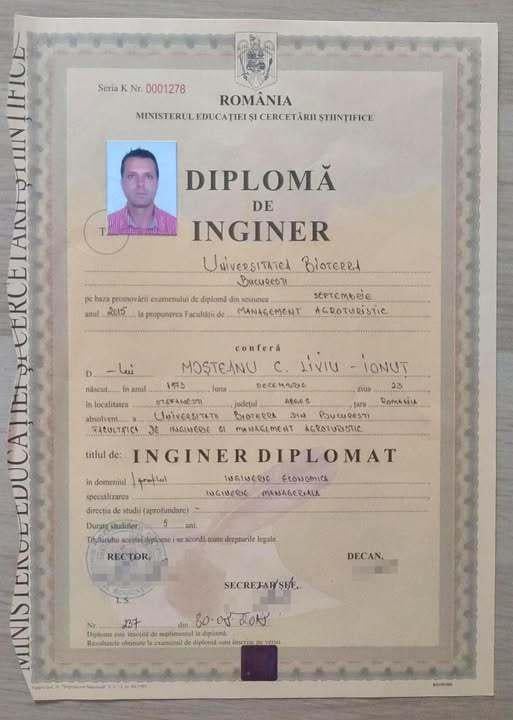 Seria K Nr. 0001278
ROMÂNIA
MINISTERUL EDUCAȚIEI ȘI CERCETĂRII ȘTIINȚIFICE
DIPLOMĂ
DE
INGINER
T.
UNIVERSITATEA BIOTERRA
BUCUREȘTI
pe baza promovării examenului de diplomă din sesiunea SEPTEMBRIE
anul 2015 la propunerea Facultății de MANAGEMENT AGROTURISTIC
conferă
D -lui MOȘTEANU C. LIVIU - IONUȚ
născut în anul 1973 luna DECEMBRIE ziua 23
în localitatea ȘTEFĂNEȘTI județul ARGEȘ țara ROMÂNIA
absolvent a UNIVERSITATII BIOTERRA DIN BUCUREȘTI
FACULTATEA DE INGINERIE SI MANAGEMENT AGROTURISTIC
titlul de: INGINER DIPLOMAT
în domeniul /profilul INGINERIE ECONOMICA
specializarea INGINERIE MANAGERIALA
direcția de studii (aprofundare) -
Durata studiilor 5 ani.
Titularului acestei diplome i se acordă toate drepturile legale.
RECTOR, DECAN,
SECRETAR ȘEF,
L.S.
Nr. 237 din
Diploma este însoțită de suplimentul la diplomă.
Rezultatele obținute la examenul de diplomă sunt înscrise pe verso.
MINISTERUL EDUCAȚIEI ȘI CERCETĂRII ȘTIINȚIFICE